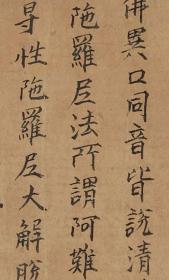 佛異口同音皆說清
陁羅尼法所謂阿難
尋性陁羅尼大解脫